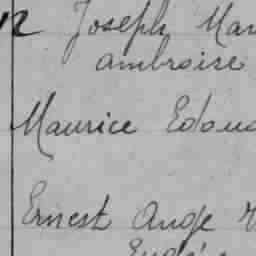 Joseph Mar
ambroise
Maurice Edou
Ernest Ange